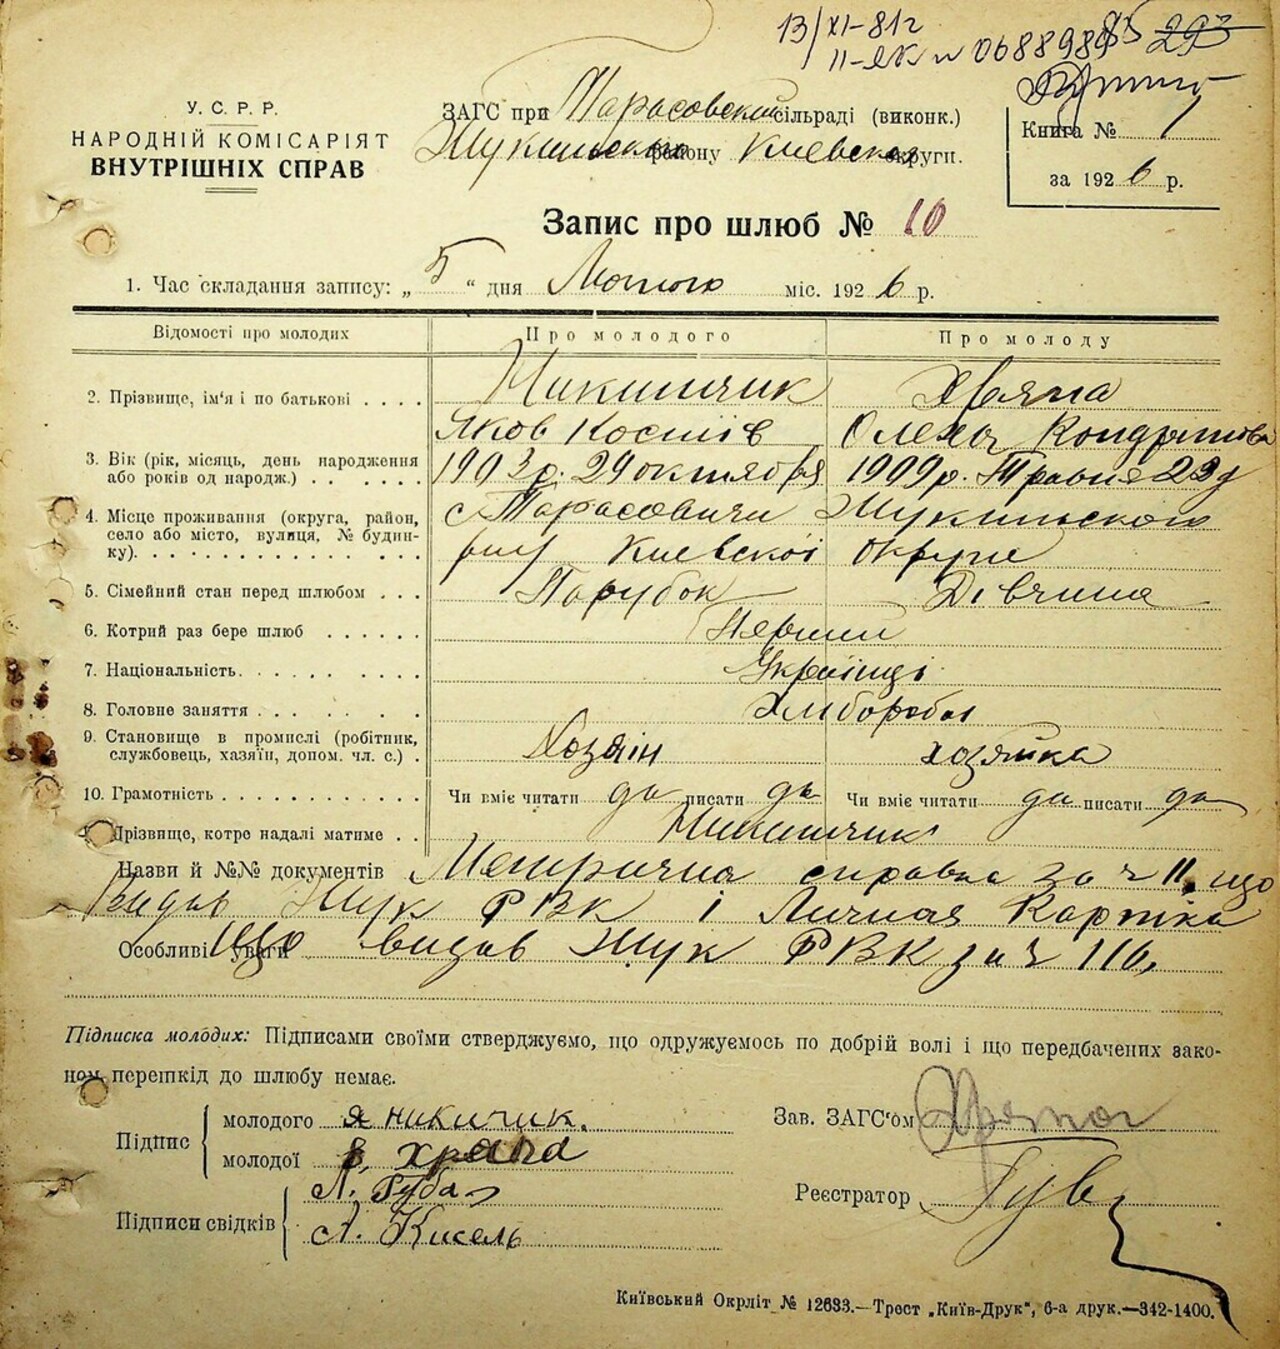 13/XI-81г 293
II-ЯК № 0688989
У. С. Р. Р.
НАРОДНІЙ КОМІСАРІЯТ
ВНУТРІШНІХ СПРАВ
ЗАГС при Тарасовский сільраді (виконк.)
району Киевской округи.
Книга № 1
за 1926 р.
Запис про шлюб № 10
1. Час складання запису: „5“ дня Лютого міс. 1926 р.
Відомості про молодих Про молодого Про молоду
2. Прізвище, ім'я і по батькові . . . . Никипчик Храпа
Яков Костів Олена Кондратова
3. Вік (рік, місяць, день народження 1903 р. 29 октября 1909 р. Травня 23 д
або років од народж.) . . . . . .
4. Місце проживання (округа, район, с Тарасовичи
село або місто, вулиця, № будин-
ку). . . . . . . . . . . . . . Киевскої округи
5. Сімейний стан перед шлюбом . . . Парубок Дівчина
6. Котрий раз бере шлюб . . . . . . Перший
7. Національність. . . . . . . . . . Українці
8. Головне заняття . . . . . . . Хлібороби
9. Становище в промислі (робітник, Хозяін хозяйка
службовець, хазяїн, допом. чл. с.) .
10. Грамотність . . . . . . . . . . . . Чи вміє читати да писати да Чи вміє читати да писати да
Прізвище, котре надалі матиме . . Никипчик
Назви й №№ документів Метрична справка за ч 11, що
видав Жук РВК і Личная Картка
Особливі уваги що видав Жук РВК за ч 116,
Підписка молодих: Підписами своїми стверджуємо, що одружуємось по добрій волі і що передбачених зако-
ном перешкід до шлюбу немає.
Підпис молодого я никичик.
молодої храпа
Зав. ЗАГС'ом
Підписи свідків Л. Губа
А. Кисель
Реєстратор Губ
Київський Окрліт № 12633.—Трест „Київ-Друк“, 6-а друк.—342-1400.